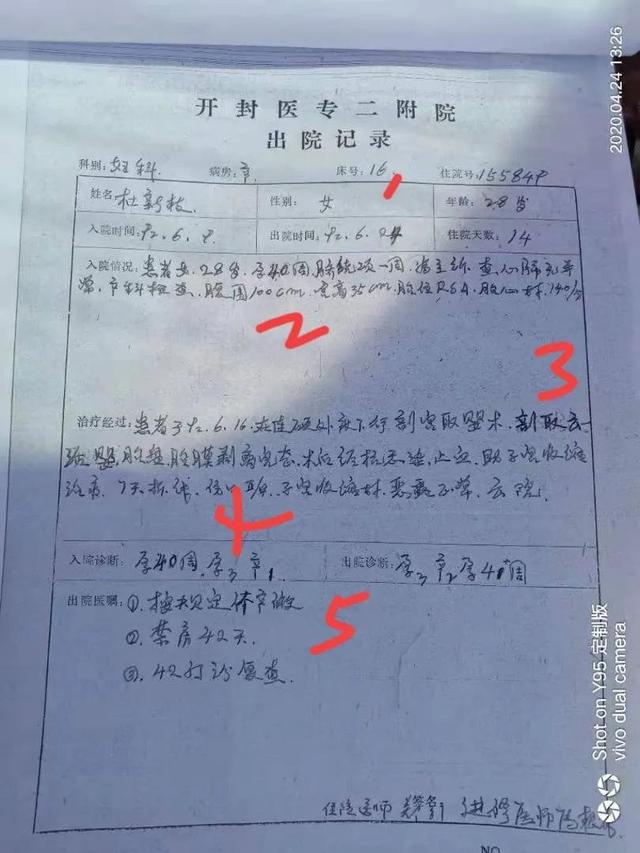 2020.04.24 13:26
开封医专二附院
出院记录
科别:妇科 病房:产 床号:16 住院号:155849
1
姓名 杜新枝 性别: 女 年龄:28岁
入院时间:92.6.9 出院时间:92.6.24 住院天数:14
入院情况:患者女.28岁,孕40周 一周,查,心肺无异
常,产科检查,腹围100cm.宫高35cm.胎位RSA.胎心 140/分
2
3
治疗经过:患者于92.6.16.在连硬外麻下行剖宫取婴术.剖取一
婴,胎盘,胎膜剥离完整,术后 助子宫收缩
治疗.7天拆线,子宫收缩 恶露正常.出院.
4
入院诊断:孕40周,孕3产1 出院诊断:孕3产2孕40周
出院医嘱:①.按规定休产假
5
②.禁房42天.
③.42天 复查.
住院医师 进修医师
NO
Shot on Y95·定制版
vivo dual camera